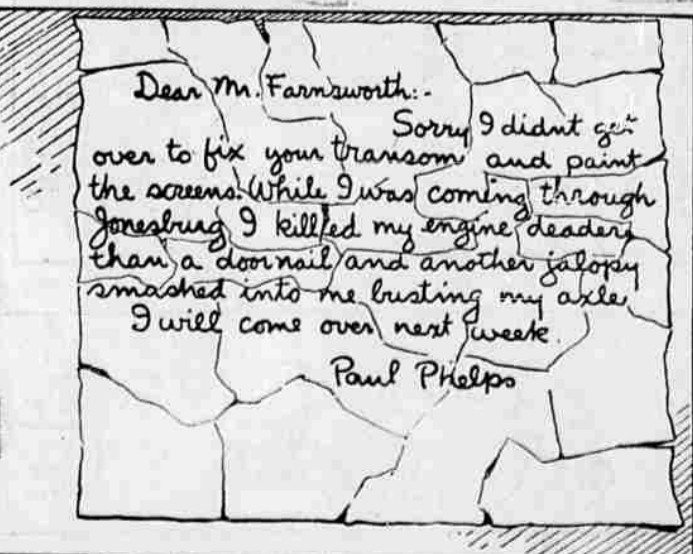 Dear Mr. Farnsworth:-
Sorry I didnt get
over to fix your transom and paint
the screens. While I was coming through
Jonesburg I killed my engine deader
than a doornail and another jalopy
smashed into me busting my axle
I will come over next week.
Paul Phelps